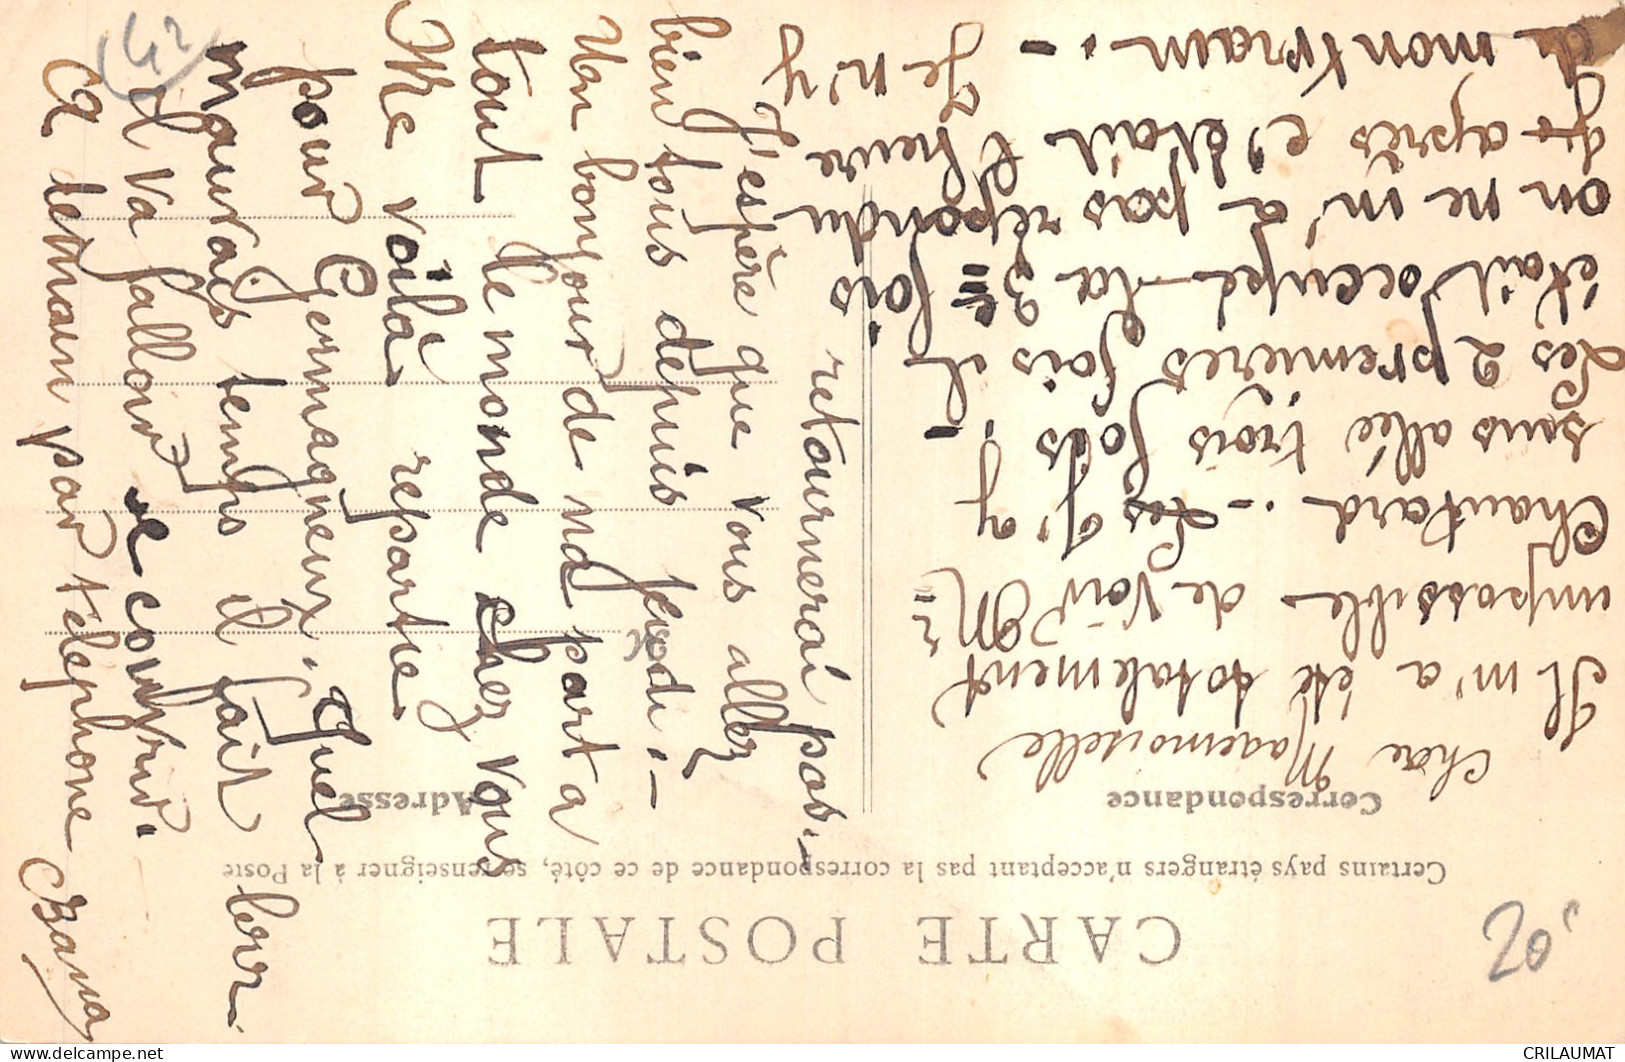 CARTE POSTALE
Certains pays étrangers n'acceptant pas la correspondance de ce côté, se renseigner à la Poste
Correspondance
Adresse
Chère Mademoiselle
Il m'a été totalement
impossible de voir Mr
Chautard .- Les J'y
suis allée trois fois ;
Les 2 premieres fois il
était occupé - la 3e fois
on ne m'a pas répondu
et après c'était l'heure
de mon train .-
Je n'y
retournerai pas.-
J'espère que vous allez
bien tous depuis jeudi .-
Un bonjour de ma part a
tout le monde chez vous
Me voilà repartie
pour Germagneux ; Quel
mauvais temps il fait
Il va falloir se couvrir.
A demain par téléphone
20
42
CRILAUMAT